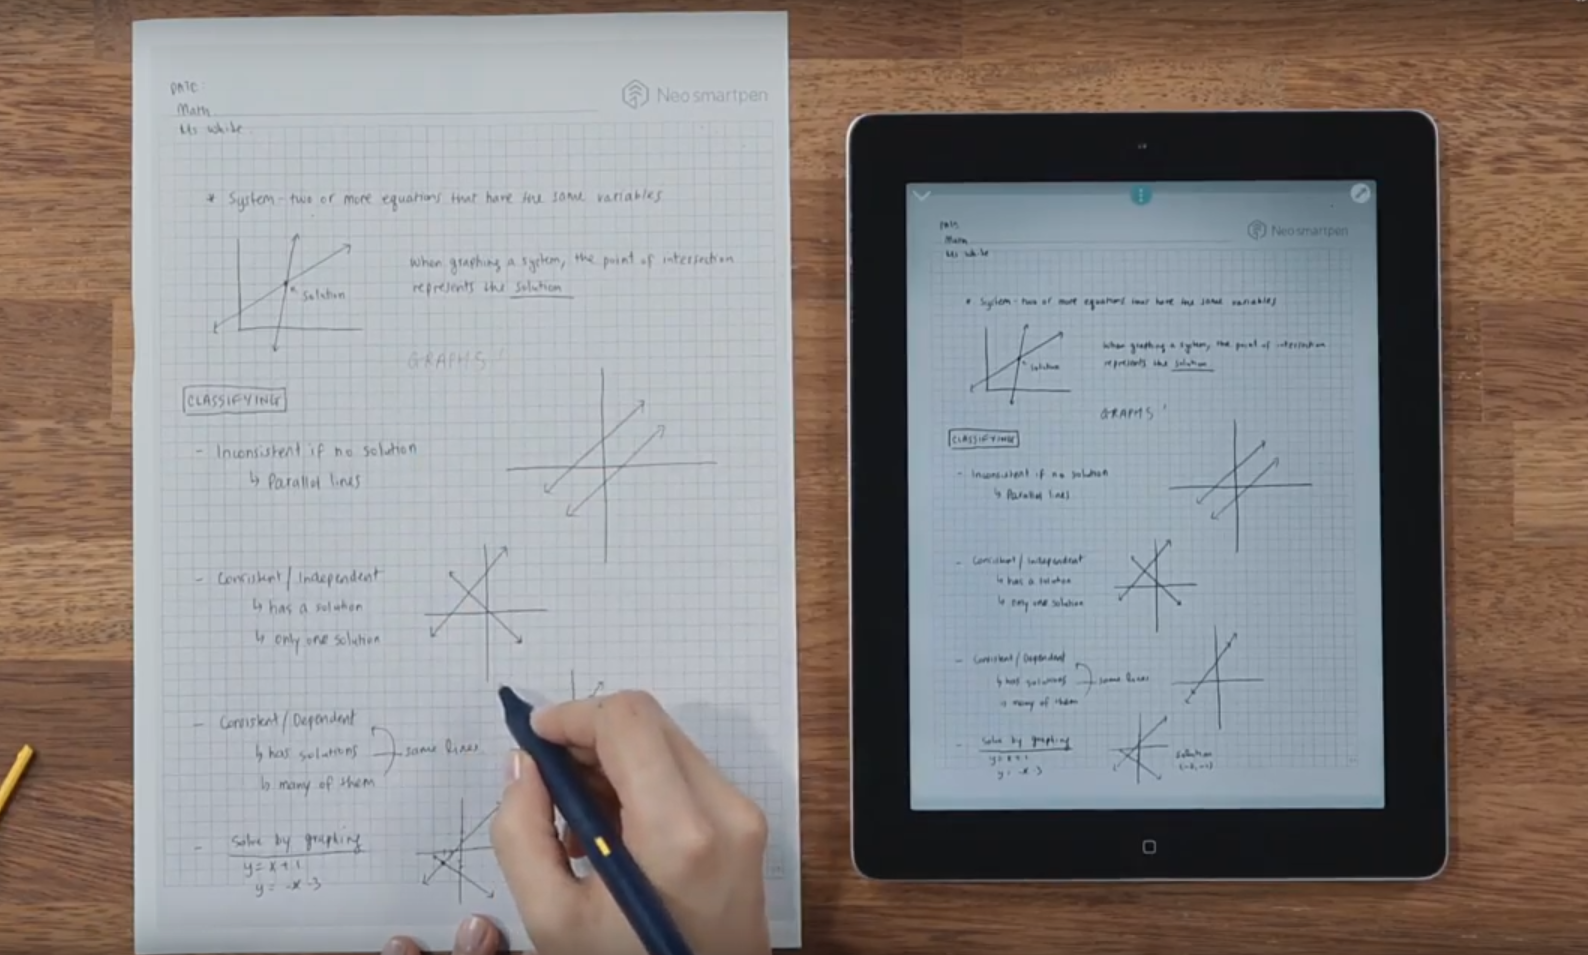 DATE:
Math
Ms White
Neo smartpen
* System - two or more equations that have the same variables
solution
when graphing a system, the point of intersection
represents the solution
GRAPHS
CLASSIFYING
- Inconsistent if no solution
↳ Parallel lines
- Consistent/Independent
↳ has a solution
↳ only one solution
- Consistent/Dependent
↳ has solutions
↳ many of them
same lines
- Solve by graphing
y = x + 1
y = -x - 3
DATE
Math
Ms White
Neo smartpen
* System - two or more equations that have the same variables
solution
when graphing a system, the point of intersection
represents the solution
GRAPHS
CLASSIFYING
- Inconsistent if no solution
↳ Parallel lines
- Consistent/Independent
↳ has a solution
↳ only one solution
- Consistent/Dependent
↳ has solutions
↳ many of them
same lines
- Solve by graphing
y = x + 1
y = -x - 3
solution
(-2, -1)